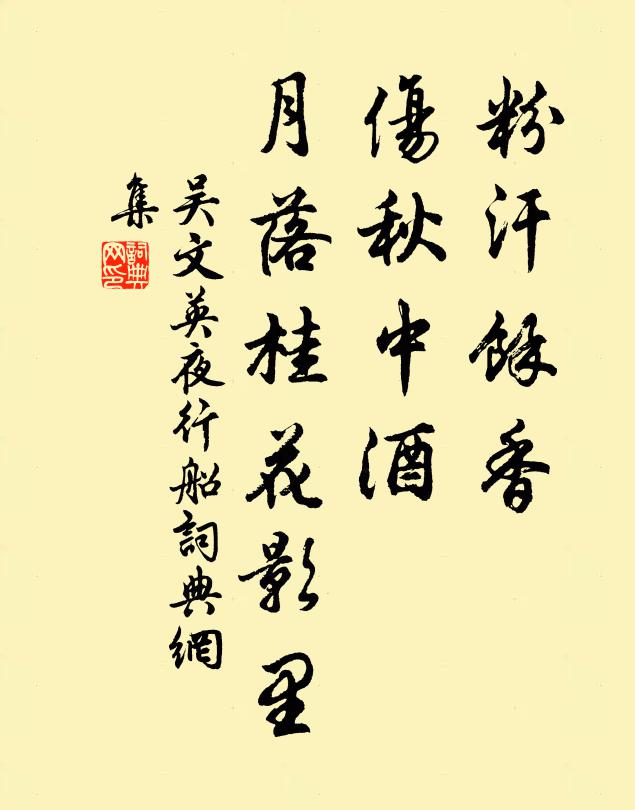 粉汗餘香
傷秋中酒
月落桂花影里
吳文英夜行船詞典網
集
詞典网印